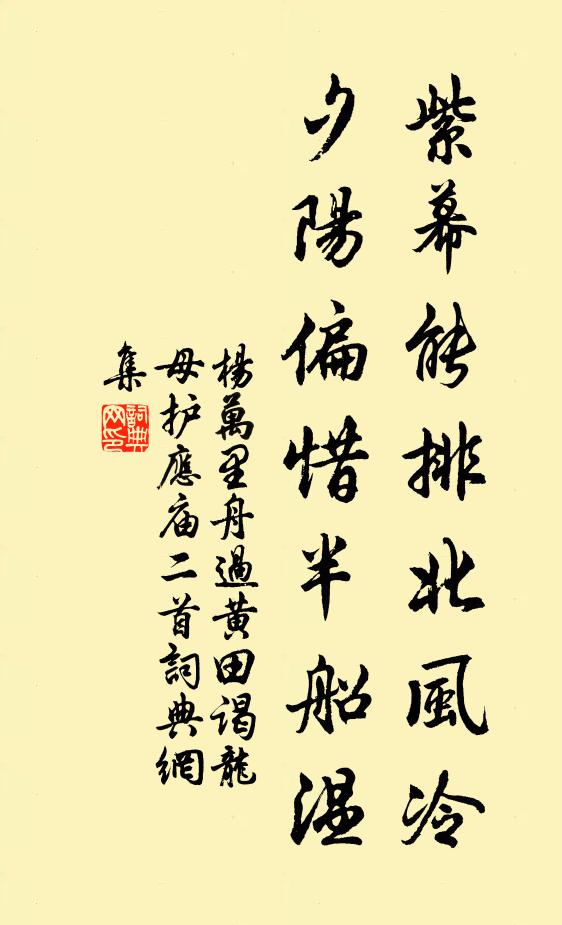 紫幕能排北風冷
夕陽偏惜半船温
楊萬里舟過黄田謁龍
母护應庙二首詞典網
集
詞典
网印